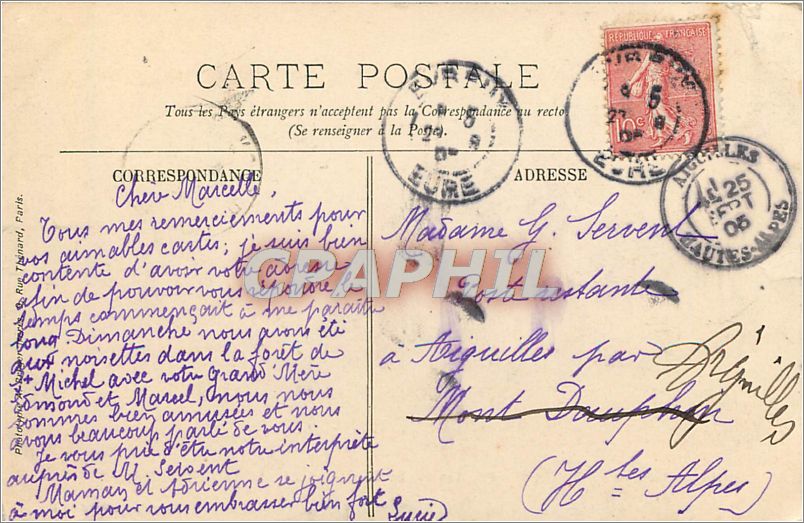 CARTE POSTALE
Tous les Pays étrangers n'acceptent pas la Correspondance au recto
(Se renseigner à la Poste).
CORRESPONDANCE
Chère Marcelle,
Tous mes remerciements pour
vos aimables cartes; je suis bien
contente d'avoir votre adresse
afin de pouvoir vous répondre le
temps commençait à me paraître
long Dimanche nous avons été
aux noisettes dans la forêt de
St Michel avec votre Grand'Mère
Edmond et Marcel, nous nous
sommes bien amusées et nous
avons beaucoup parlé de vous.
Je vous prie d'être notre interprète
auprès de M. Servent
Maman et Adrienne se joignent
à moi pour vous embrasser bien fort
Lucie
ADRESSE
Madame G. Servent
Poste restante
à Aiguilles par
Mont Dauphin
(Htes Alpes)
RÉPUBLIQUE FRANÇAISE
10c
EURE
EURE
AIGUILLES
25
SEPT
05
HAUTES-ALPES
Rue Thénard, Paris.
DELCAMPE